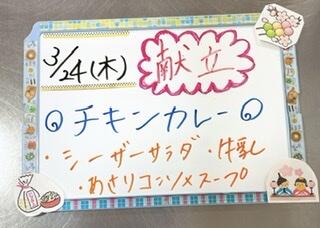 3/24(木) 献立
チキンカレー
・シーザーサラダ ・牛乳
・あさりコンソメスープ